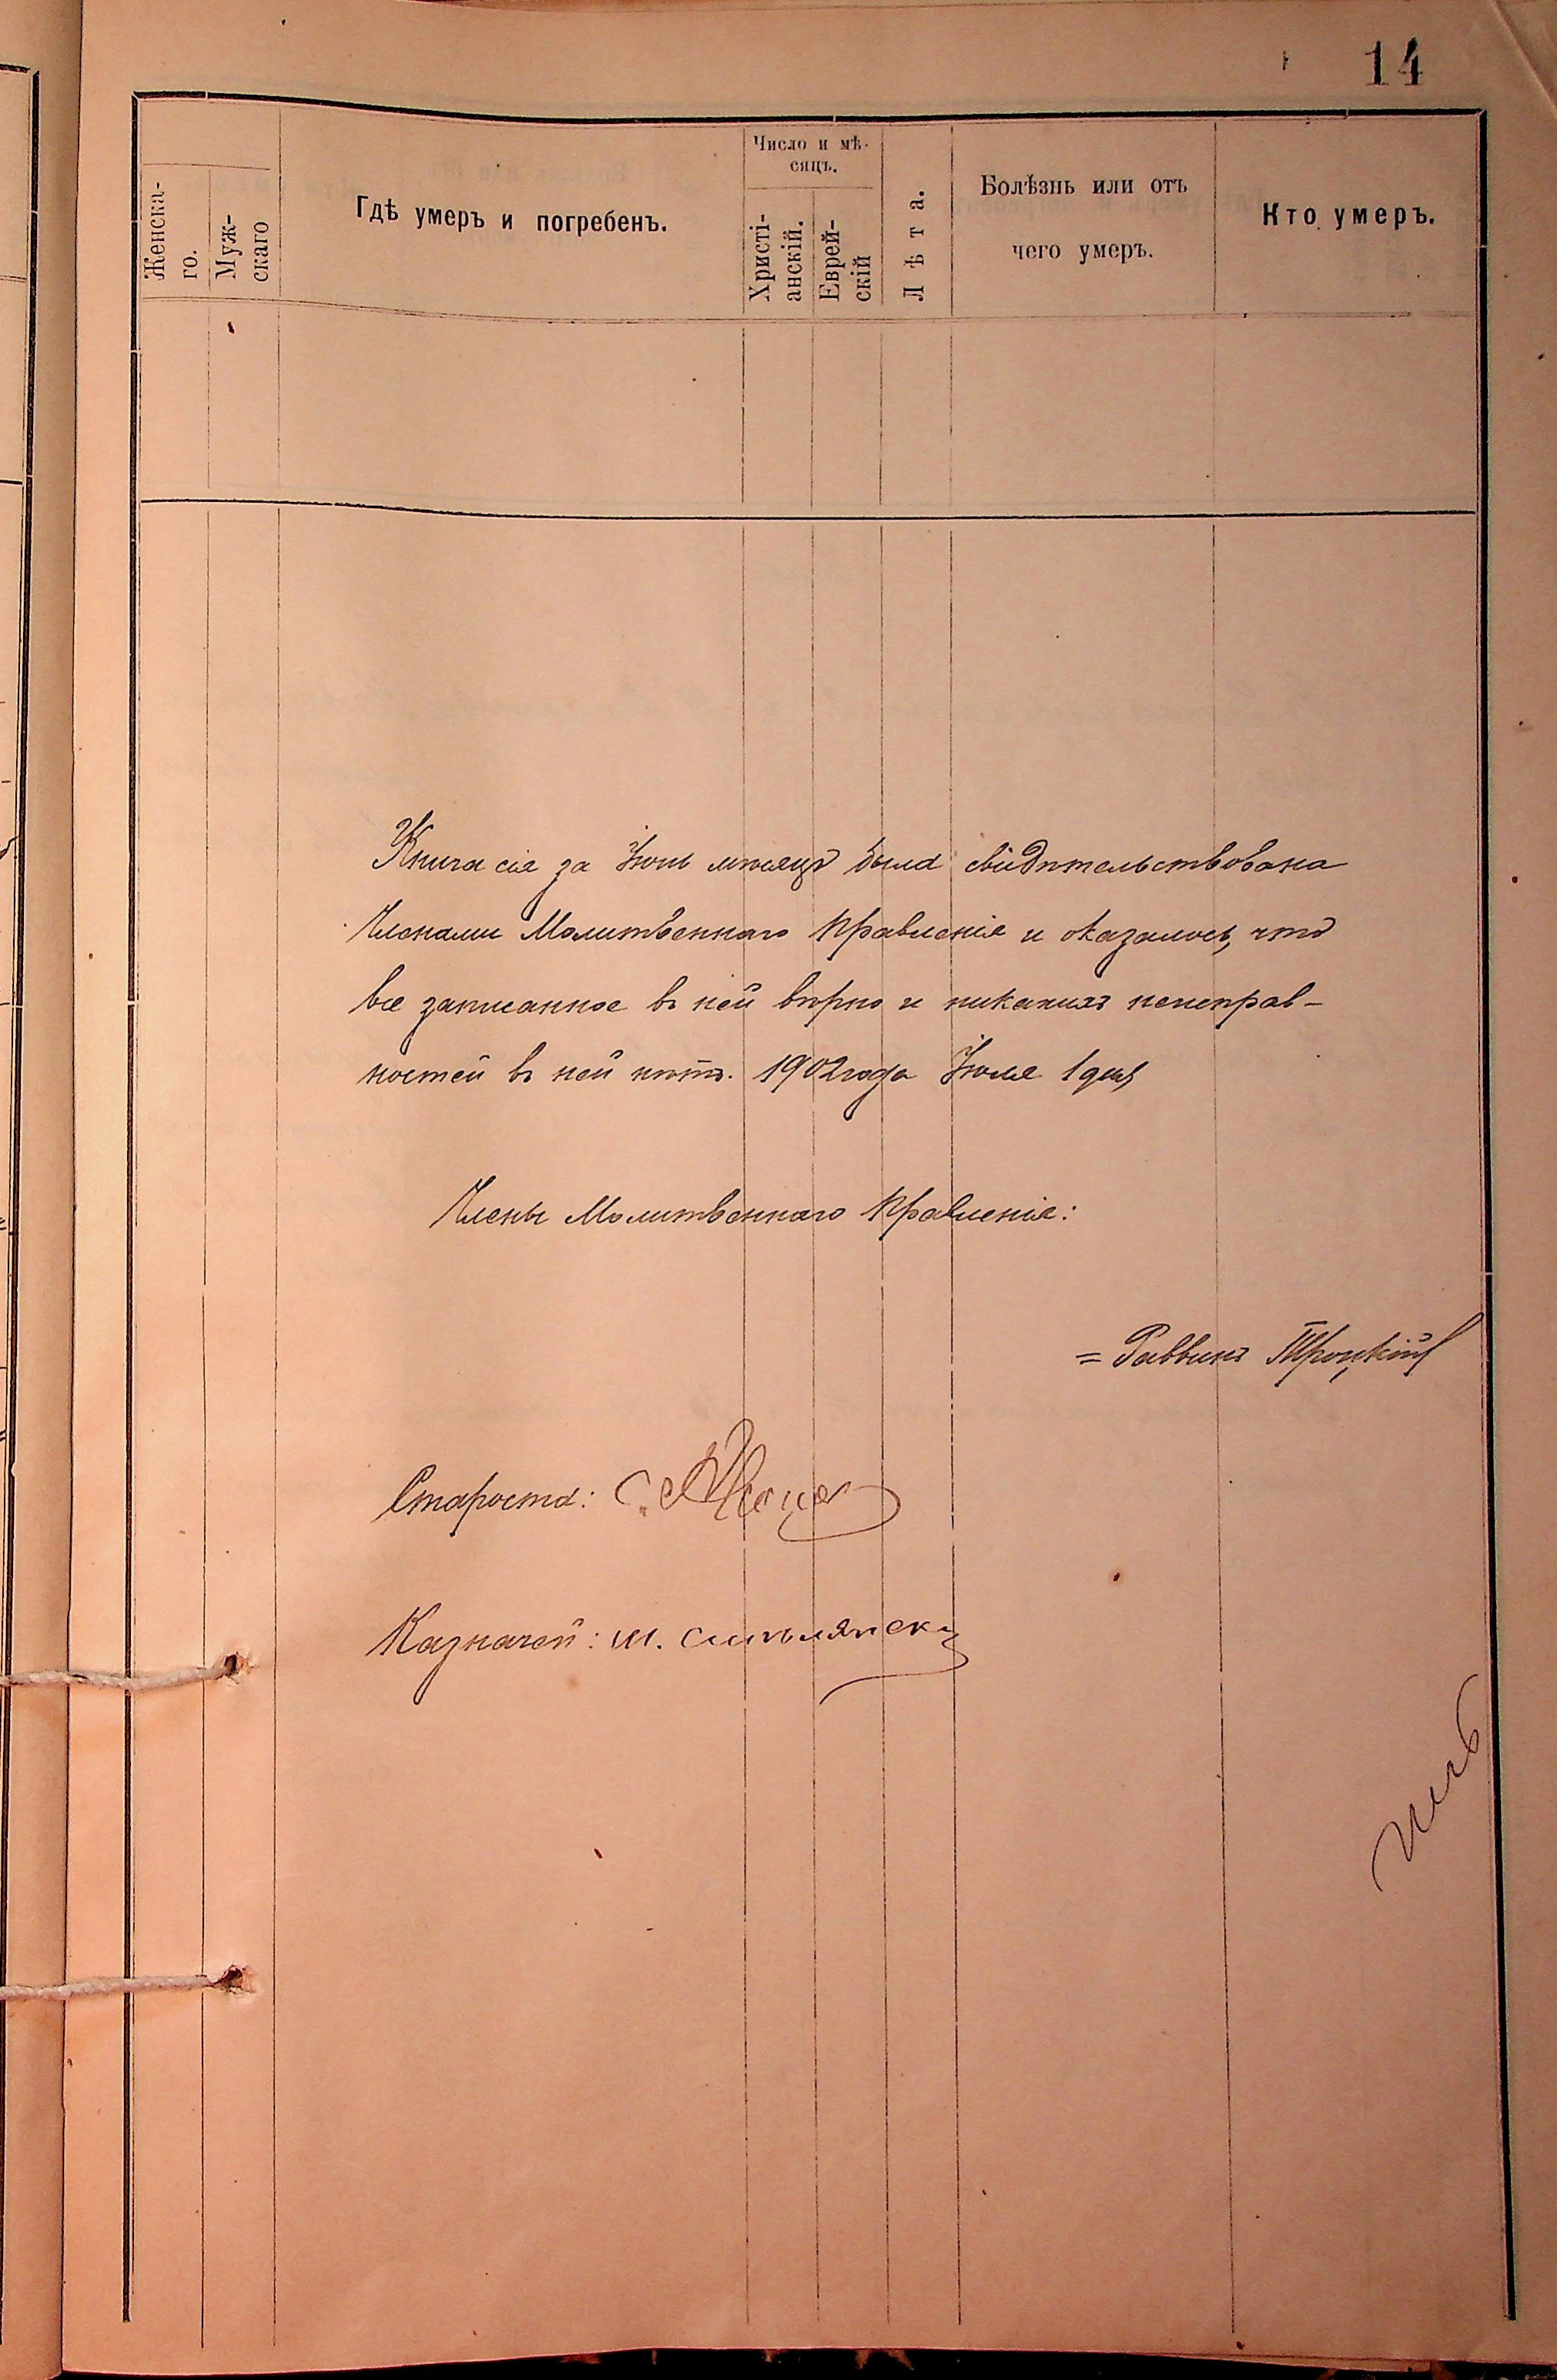 14
Женска-
го.
Муж-
скаго
Гдѣ умеръ и погребенъ.
Число и мѣ-
сяцъ.
Христі-
анскій.
Еврей-
скій
Лѣта.
Болѣзнь или отъ
чего умеръ.
Кто умеръ.
Книга сія за Іюнь мѣсяцъ была свидѣтельствована
Членами Молитвеннаго Правленія и оказалось, что
все записанное въ ней вѣрно и никакихъ неисправ-
ностей въ ней нѣтъ. 1902 года Іюля 1 дня
Члены Молитвеннаго Правленія:
= Раввинъ Троцкій
Староста: С.
Казначей: Ш.